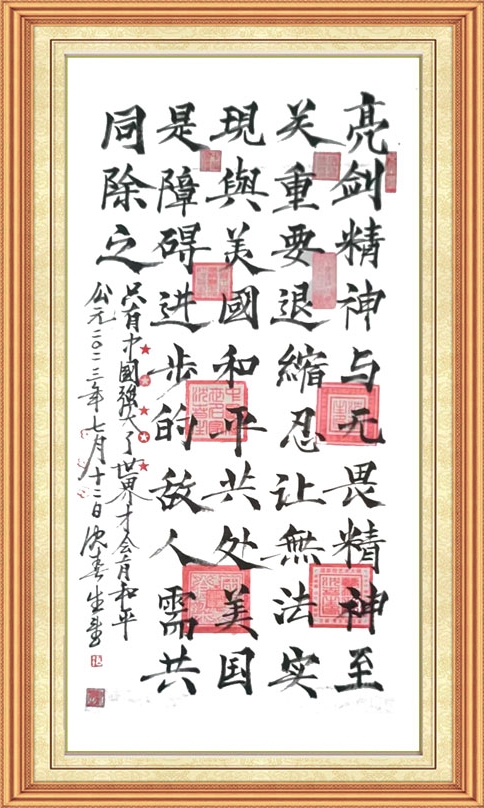 亮剑精神与无畏精神至
关重要退縮忍让無法实
現與美國和平共处美国
是障碍进步的敌人需共
同除之
只有中國強大了世界才会有和平
公元二〇二三年七月十二日沈春生書